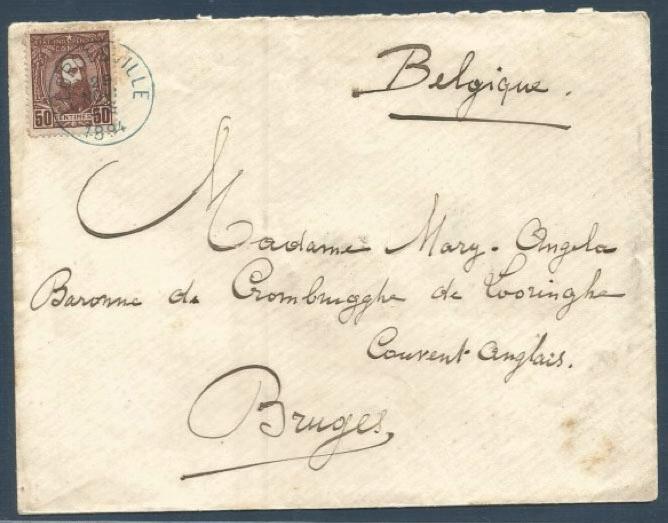 ETAT INDEPENDANT
CONGO
50 CENTIMES 50
VILLE
1894
Belgique.
Madame Mary-Angela
Baronne de Crombrugghe de Looringhe
Couvent Anglais.
Bruges,